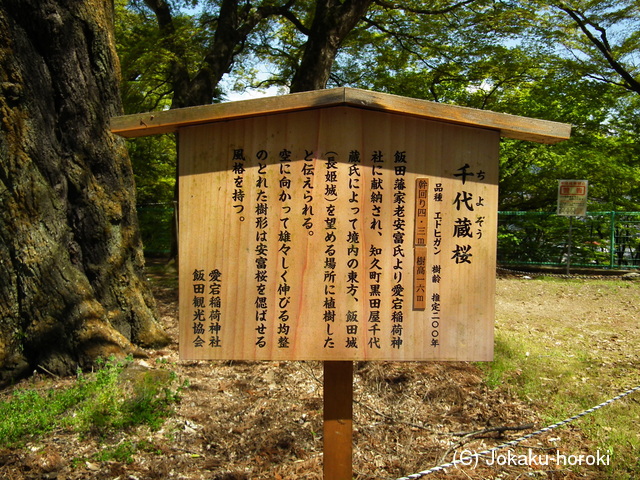 ちよぞう
千代蔵桜
品種 エドヒガン 樹齢 推定二〇〇年
幹回り四・三m 樹高一六m
飯田藩家老安富氏より愛宕稲荷神
社に献納され、知久町黒田屋千代
蔵氏によって境内の東方、飯田城
(長姫城)を望める場所に植樹した
と伝えられる。
空に向かって雄々しく伸びる均整
のとれた樹形は安富桜を偲ばせる
風格を持つ。
愛宕稲荷神社
飯田観光協会
(C) Jokaku-horoki